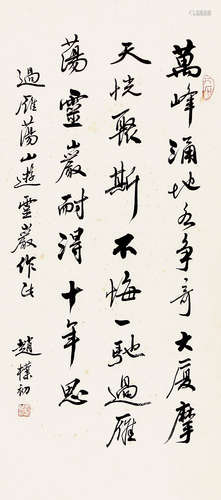 萬峰湧地各爭奇大廈摩
天恍聚斯不悔一馳過雁
蕩靈巖耐得十年思
過雁蕩山遊靈巖作此
趙樸初